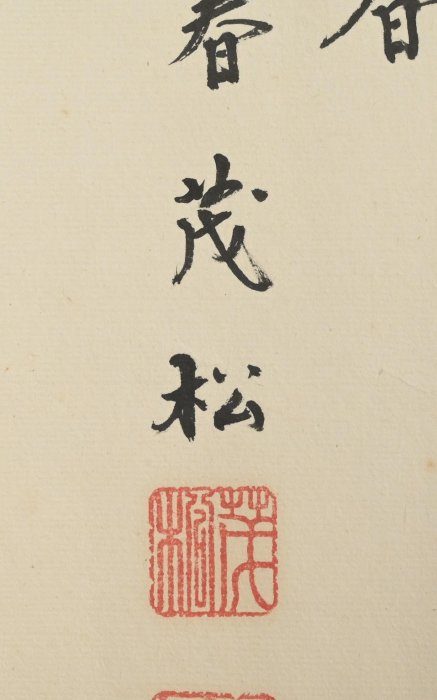 春茂松
茂松